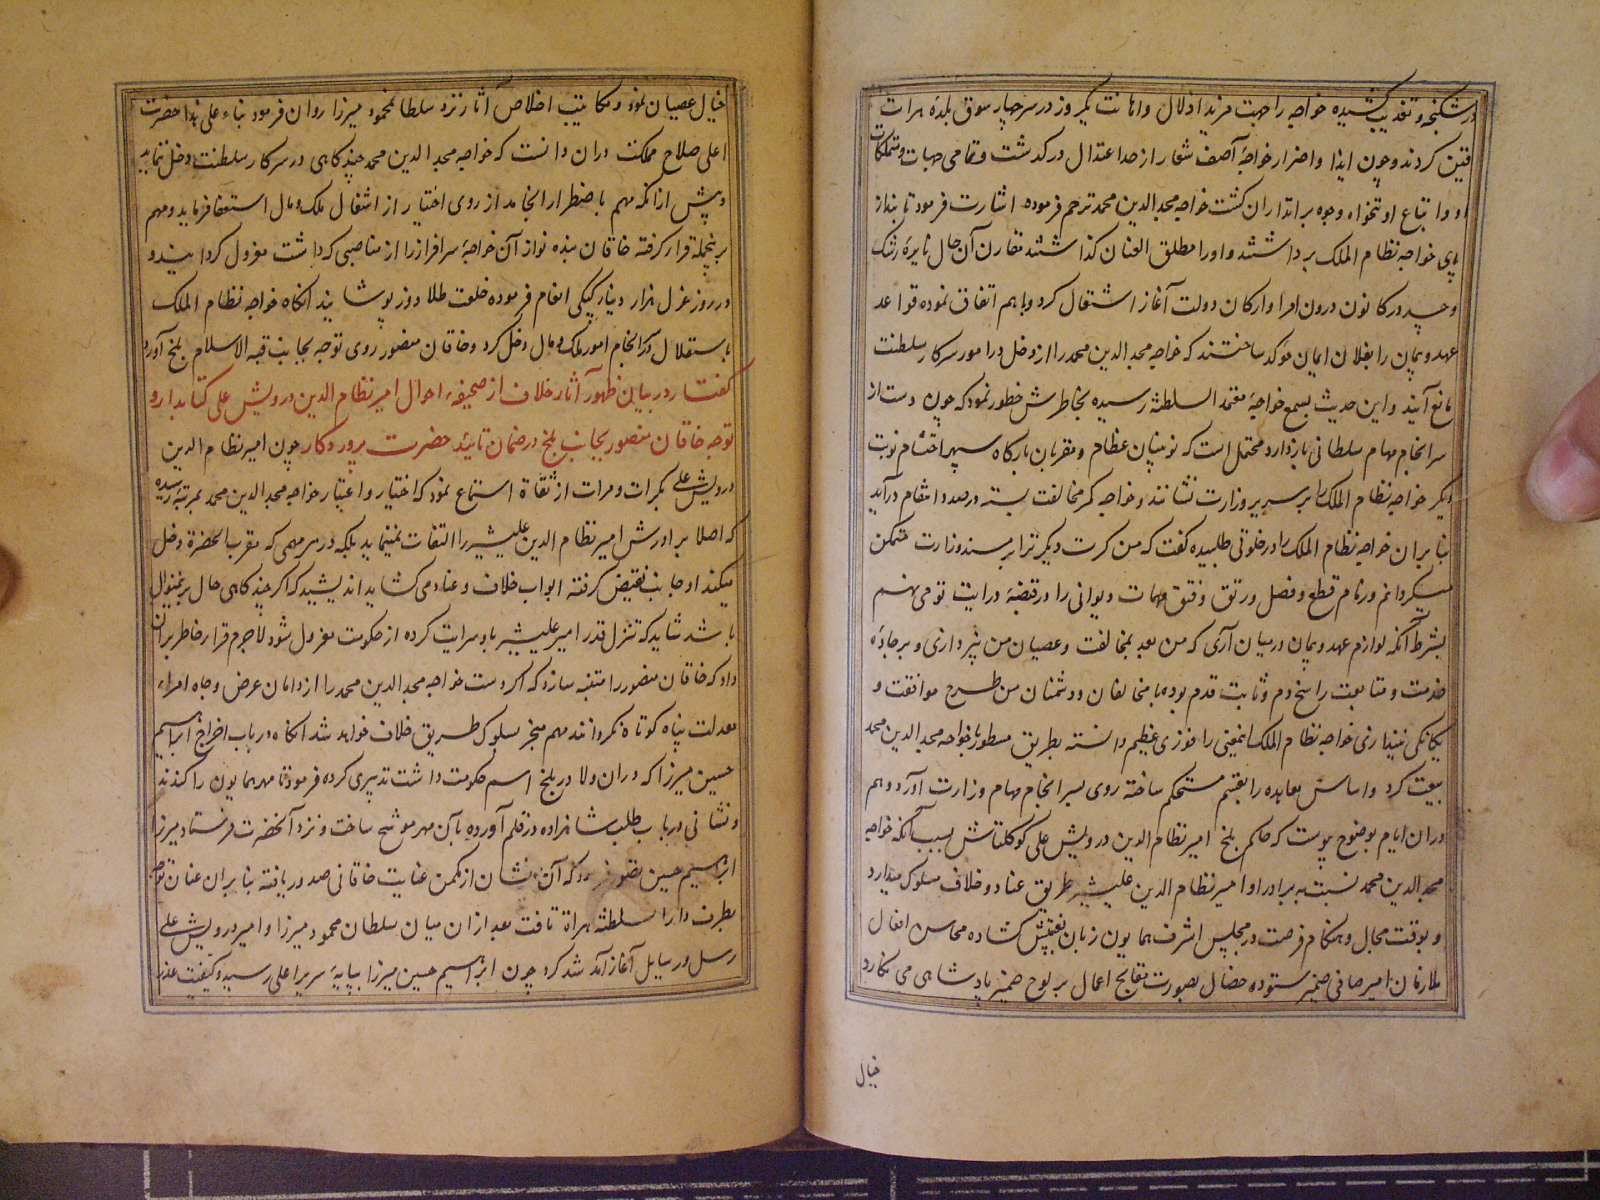 در شکنجه و تعذیب کشیده خواجه را جهت مزید اذلال و اهانت یکروز در سر چهار سوق بلدهٔ هرات
قتین کردند و چون ایذا و اضرار خواجهٔ آصف شعار از حد اعتدال درگذشت و تمامی جهات و متملکات
او و اتباع او تنخواه وجوه براتداران گشت خواجه مجد الدین محمد ترحم فرموده اشارت فرمود تا بند از
پای خواجه نظام الملک برداشتند و او را مطلق العنان گذاشتند مقارن آن حال نایرهٔ رشک
و حسد در کانون درون امرا و ارکان دولت آغاز اشتعال کرد و با هم اتفاق نموده قواعد
عهد و پیمان را بغلان ایمان موکد ساختند که خواجه مجد الدین محمد را از دخل در امور سرکار سلطنت
مانع آیند و این حدیث بسمع خواجهٔ معتمد السلطنة رسیده بخاطرش خطور نمود که چون دست از
سرانجام مهام سلطانی بازدارد محتمل است که نوینان عظام و مقربان بارگاه سپهر احتشام نوبت
دیگر خواجه نظام الملک را بر سریر وزارت نشانند و خواجه کمر مخالفت بسته در صدد انتقام درآید
بنابران خواجه نظام الملک را در خلوتی طلبیده گفت که من کرت دیگر ترا بر مسند وزارت متمکن
میگردانم و زمام قطع و فصل و رتق و فتق مهمات دیوانی را در قبضهٔ درایت تو می نهم
بشرط آنکه لوازم عهد و پیمان در میان آری که من بعد بمخالفت و عصیان من نپردازی و بر جادهٔ
خدمت و متابعت راسخ دم و ثابت قدم بوده با مخالفان و دشمنان من طرح موافقت و
یکانگی نیندازی خواجه نظام الملک اینمعنی را فوزی عظیم دانسته بطریق مسطور با خواجه مجد الدین محمد
بیعت کرد و اساس معاهده را بقسم مستحکم ساخته روی بسرانجام مهام وزارت آورد و هم
دران ایام بوضوح پیوست که حاکم بلخ امیر نظام الدین درویش علی کوکلتاش بسبب آنکه خواجه
مجد الدین محمد نسبت به برادر او امیر نظام الدین علیشیر طریق عناد و خلاف مسلوک میدارد
و بوقت مجال و هنگام فرصت در مجلس اشرف همایون زبان بغیبتش کشاده محاسن افعال
ملازمان امیر صافی ضمیر ستوده خصال بصورت قبایح اعمال بر لوح ضمیر پادشاهی می نگارد
خیال
خیال عصیان نموده و مکاتیب اخلاص آثار نزد سلطان محمود میرزا روان فرمود بناء علی هذا حضرت
اعلی صلاح مملکت دران دانست که خواجه مجد الدین محمد چند گاهی در سرکار سلطنت دخل ننماید
و پیش از آنکه مهم باضطرار انجامد از روی اختیار از اشغال ملک و مال استعفا فرماید و مهم
برینجمله قرار گرفته خاقان بنده نواز آن خواجهٔ سرافراز را از مناصبی که داشت معزول گردانید و
در روز عزل هزار دینار کپکی انعام فرموده خلعت طلادوز پوشانید آنگاه خواجه نظام الملک
باستقلال در سرانجام امور ملک و مال دخل کرد و خاقان منصور روی توجه بجانب قبة الاسلام بلخ آورد
گفتار در بیان ظهور آثار خلاف از صحیفهٔ احوال امیر نظام الدین درویش علی کتابدار و
توجه خاقان منصور بجانب بلخ در ضمان تائید حضرت پروردگار چون امیر نظام الدین
درویش علی بکرات و مرات از ثقاة استماع نمود که اختیار و اعتبار خواجه مجد الدین محمد بمرتبهٔ رسیده
که اصلا برادرش امیر نظام الدین علیشیر را التفات نمینماید بلکه در هر مهمی که مقرب الحضرة دخل
میکند او جانب نقیض گرفته ابواب خلاف و عناد می کشاید اندیشید که اگر چند گاهی حال برینمنوال
باشد شاید که تنزل قدر امیر علیشیر باو سرایت کرده از حکومت معزول شود لاجرم قرار خاطر بران
داد که خاقان منصور را متنبه سازد که اگر دست خواجه مجد الدین محمد را از دامان عرض و جاه امراء
معدلت پناه کوتاه نگردانند مهم منجر بسلوک طریق خلاف خواهد شد آنگاه در باب اخراج ابراهیم
حسین میرزا که دران ولا در بلخ اسم حکومت داشت تدبیری کرده فرمود تا مهر همایون را کندند
و نشانی در باب طلب شاهزاده در قلم آورده بآن مهر موشح ساخت و نزد آنحضرت فرستاد میرزا
ابراهیم حسین تصور نمود که آن نشان از مکمن عنایت خاقانی صدور یافته بنابران عنان توجه
بطرف دار السلطنة هراة تافت بعد ازان میان سلطان محمود میرزا و امیر درویش علی
رسل و رسایل آغاز آمد شد کرد چون ابراهیم حسین میرزا بپایهٔ سریر اعلی رسید و کیفیت غدر